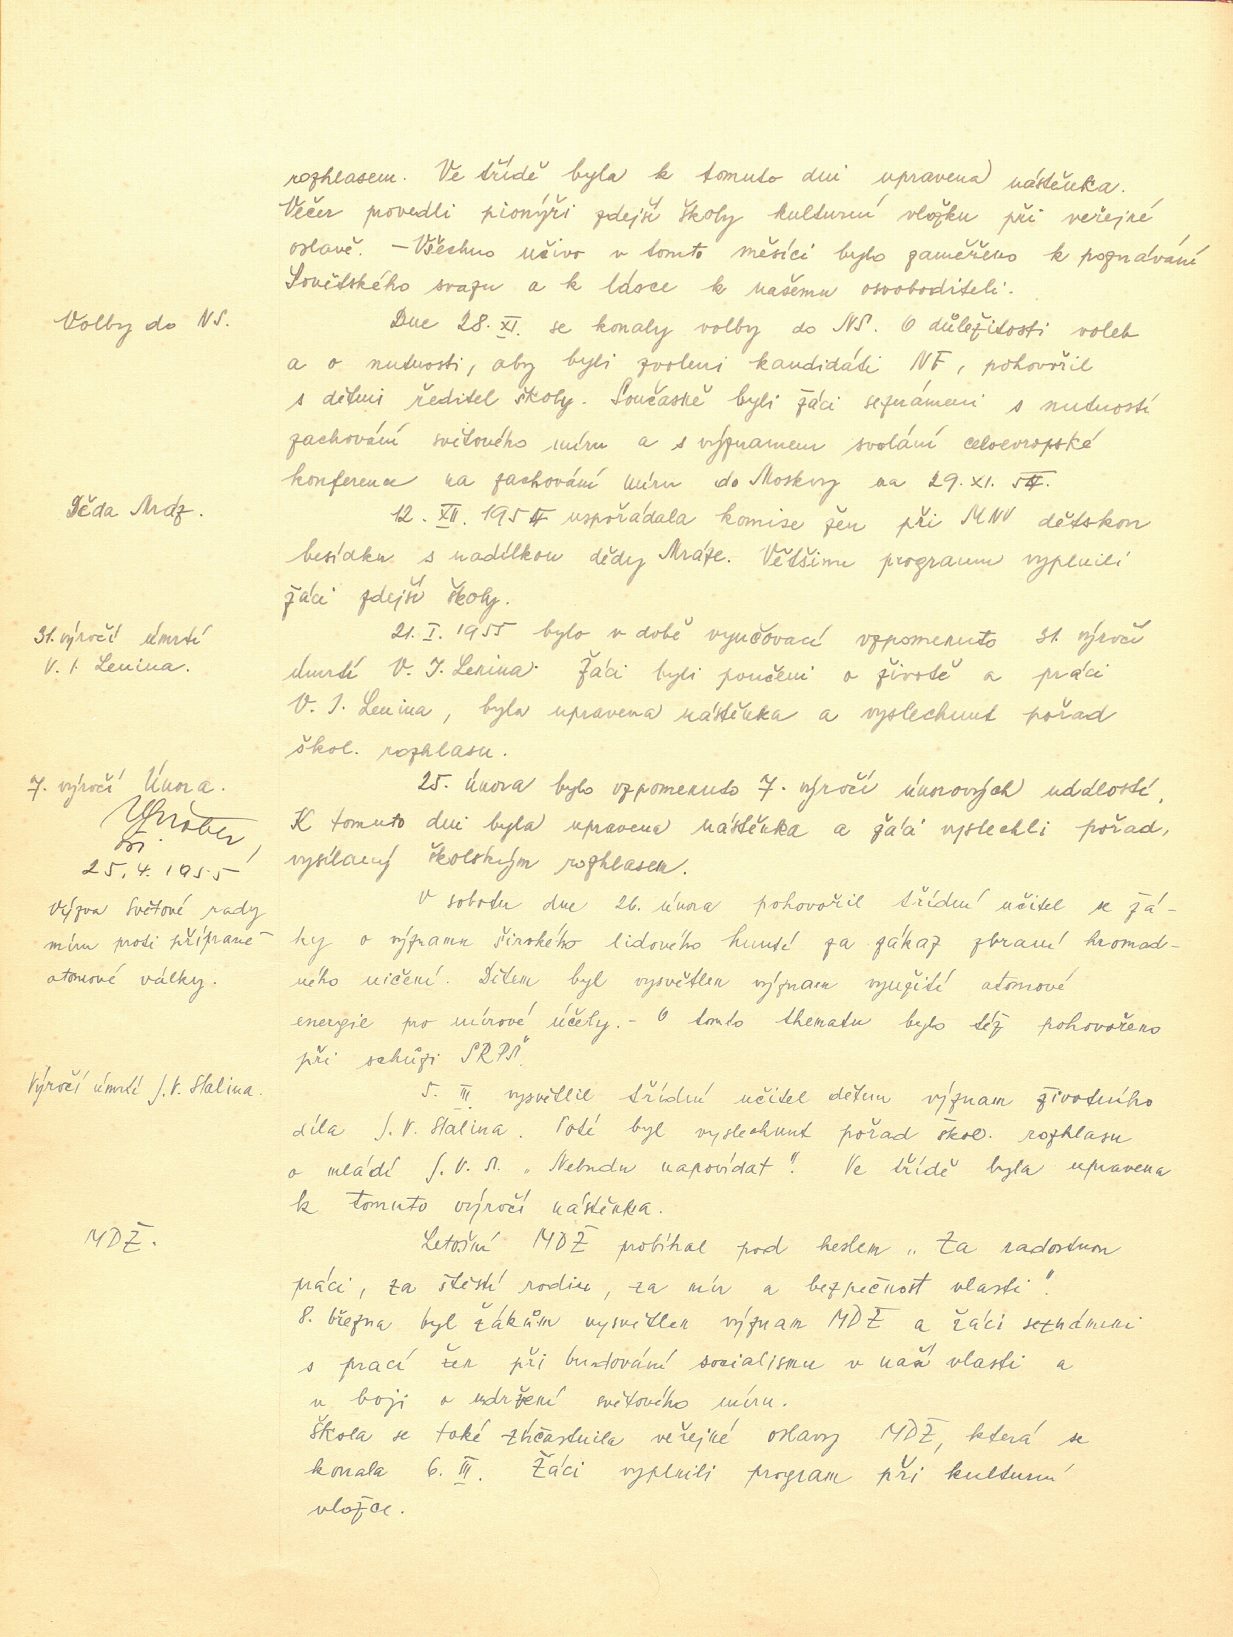 rozhlasem. Ve třídě byla k tomuto dni upravena nástěnka.
Večer provedli pionýři zdejší školy kulturní vložku při veřejné
oslavě. – Všechno učivo v tomto měsíci bylo zaměřeno k poznávání
Sovětského svazu a k lásce k našemu osvoboditeli.
Volby do NS.
Dne 28. XI. se konaly volby do NS. O důležitosti voleb
a o nutnosti, aby byli zvoleni kandidáti NF, pohovořil
s dětmi ředitel školy. Současně byli žáci seznámeni s nutností
zachování světového míru a s významem svolání celoevropské
konference na zachování míru do Moskvy na 29. XI. 54.
Děda Mráz.
12. XII. 1954 uspořádala komise žen při MNV dětskou
besídku s nadílkou dědy Mráze. Většinu programu vyplnili
žáci zdejší školy.
31. výročí úmrtí
V. I. Lenina.
21. I. 1955 bylo v době vyučovací vzpomenuto 31. výročí
úmrtí V. I. Lenina. Žáci byli poučeni o životě a práci
V. I. Lenina, byla upravena nástěnka a vyslechnut pořad
škol. rozhlasu.
7. výročí Února.
25. února bylo vzpomenuto 7. výročí únorových událostí.
K tomuto dni byla upravena nástěnka a žáci vyslechli pořad,
vysílaný školským rozhlasem.
25. 4. 1955
Výzva Světové rady
míru proti přípravě
atomové války.
V sobotu dne 26. února pohovořil třídní učitel se žá-
ky o významu širokého lidového hnutí za zákaz zbraní hromad-
ného ničení. Dětem byl vysvětlen význam využití atomové
energie pro mírové účely. – O tomto thematu bylo též pohovořeno
při schůzi SRPŠ.
Výročí úmrtí J. V. Stalina.
5. III. vysvětlil třídní učitel dětem význam životního
díla J. V. Stalina. Poté byl vyslechnut pořad škol. rozhlasu
o mládí J. V. S. „Nebudu napovídat“. Ve třídě byla upravena
k tomuto výročí nástěnka.
MDŽ.
Letošní MDŽ probíhal pod heslem „Za radostnou
práci, za štěstí rodin, za mír a bezpečnost vlasti“.
8. března byl žákům vysvětlen význam MDŽ a žáci seznámeni
s prací žen při budování socialismu v naší vlasti a
v boji o udržení světového míru.
Škola se také zúčastnila veřejné oslavy MDŽ, která se
konala 6. III. Žáci vyplnili program při kulturní
vložce.